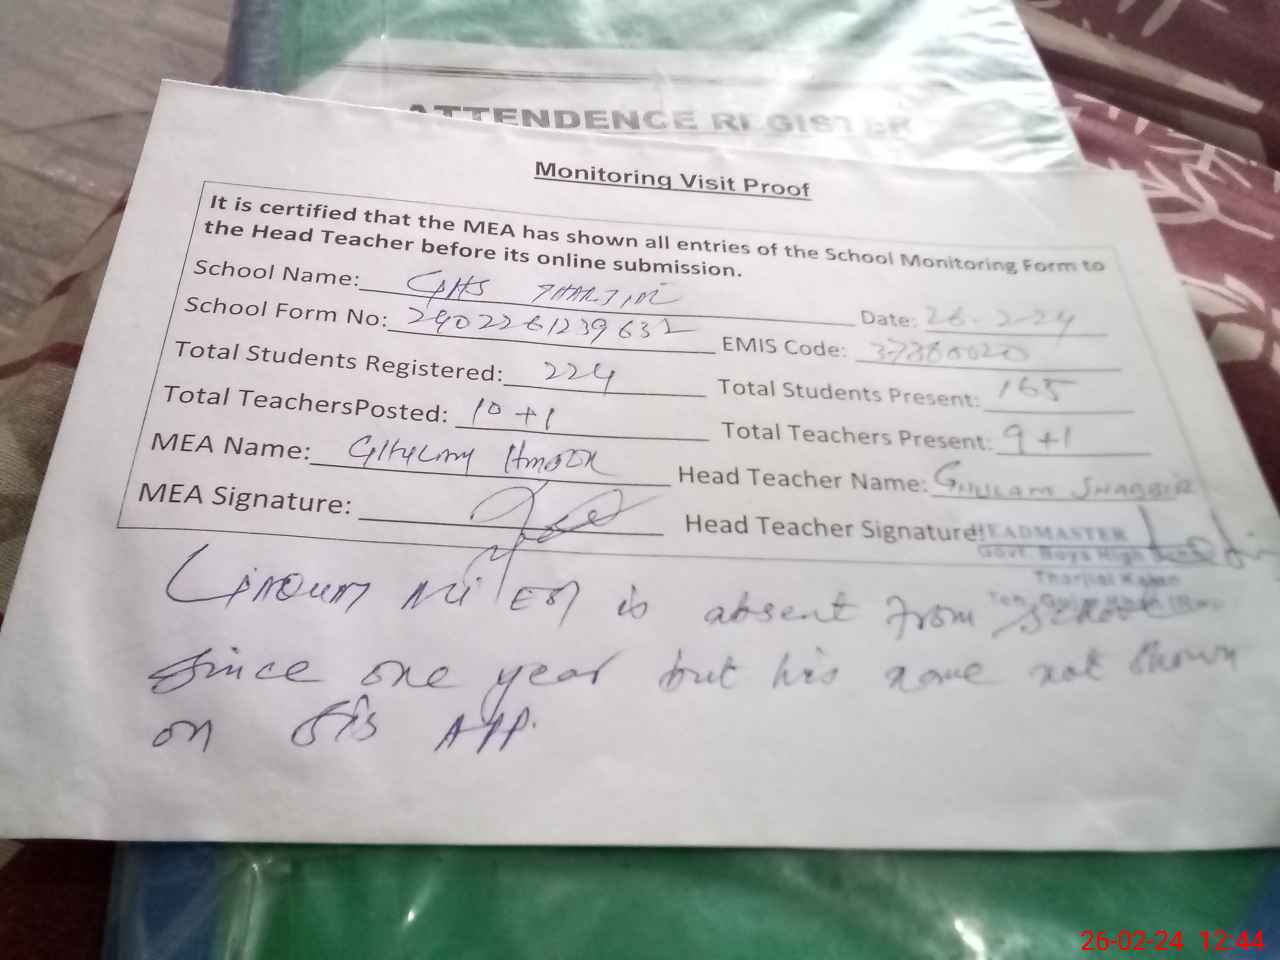 ATTENDENCE REGISTER
Monitoring Visit Proof
It is certified that the MEA has shown all entries of the School Monitoring Form to
the Head Teacher before its online submission.
School Name: GHS Date: 26-2-24
School Form No: EMIS Code:
Total Students Registered: 224 Total Students Present: 165
Total TeachersPosted: 10+1 Total Teachers Present: 9+1
MEA Name: Head Teacher Name: GHULAM SHABBIR
MEA Signature: Head Teacher Signature:
HEADMASTER
Govt. Boys High
is absent from school
since one year but his name not shown
on SIS APP.
26-02-24 12:44